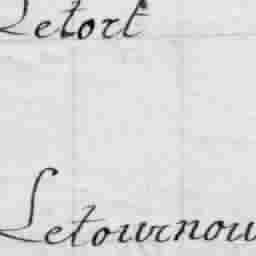 Letort
Letournou